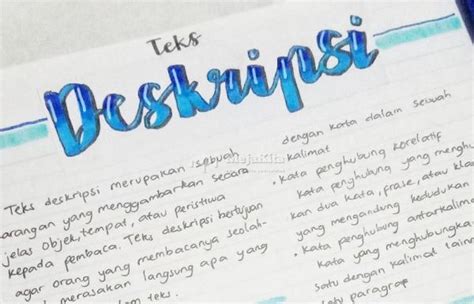 Teks
Deskripsi
Teks deskripsi merupakan sebuah
arangan yang menggambarkan secara
jelas objek, tempat, atau peristiwa
kepada pembaca. Teks deskripsi bertujuan
agar orang yang membacanya seolah-
merasakan langsung apa yang
dalam teks.
dengan kata dalam sebuah
kalimat
• kata penghubung korelatif
kata penghubung yang menghu
kan dua kata, frase, atau kla
yang mengandung kedudukan
• kata penghubung antarkalima
kata yang menghubungka
satu dengan kalimat lainn
paragrap